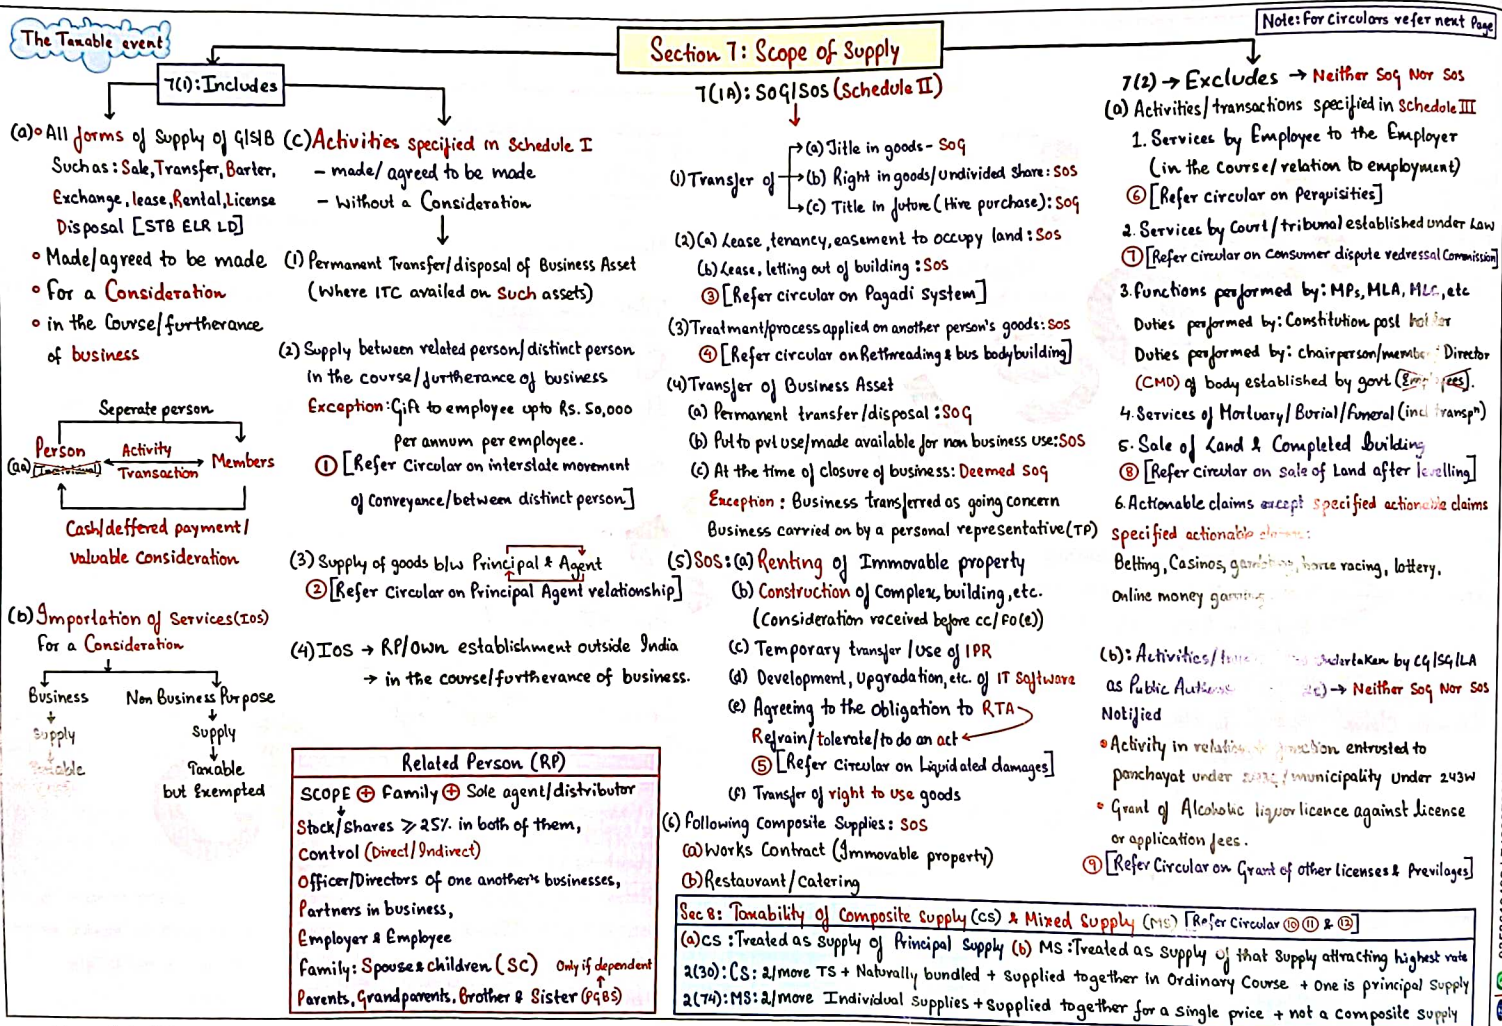 The Taxable event
Note: For Circulars refer next Page
Section 7: Scope of Supply
7(1): Includes
(a) All forms of Supply of G/S/B
Such as: Sale, Transfer, Barter,
Exchange, lease, Rental, License
Disposal [STB ELR LD]
Made/agreed to be made
For a Consideration
in the Course/furtherance
of business
Seperate person
Person
(aa) (Individual)
Activity
Transaction
Members
Cash/deffered payment/
Valuable Consideration
(b) Importation of Services (IOS)
For a Consideration
Business
Supply
Taxable
Non Business Purpose
Supply
Taxable
but Exempted
(C) Activities specified in Schedule I
- made/agreed to be made
- Without a Consideration
(1) Permanent Transfer/disposal of Business Asset
(Where ITC availed on Such assets)
(2) Supply between related person/distinct person
in the course/furtherance of business
Exception: Gift to employee upto Rs. 50,000
Per annum per employee.
① [Refer Circular on interstate movement
of Conveyance/between distinct person]
(3) Supply of goods b/w Principal & Agent
② [Refer Circular on Principal Agent relationship]
(4) IOS → RP/Own establishment outside India
→ in the course/furtherance of business.
Related Person (RP)
SCOPE ⊕ Family ⊕ Sole agent/distributor
Stock/Shares ⩾ 25% in both of them,
Control (Direct/Indirect)
Officer/Directors of one another's businesses,
Partners in business,
Employer & Employee
Family: Spouse & children (SC) Only if dependent
Parents, Grandparents, Brother & Sister (PGBS)
7(1A): SOG/SOS (Schedule II)
(1) Transfer of
(a) Title in goods - SOG
(b) Right in goods/undivided share: SOS
(c) Title in future (Hire purchase): SOG
(2)(a) Lease, tenancy, easement to occupy land: SOS
(b) Lease, letting out of building: SOS
③ [Refer circular on Pagadi System]
(3) Treatment/process applied on another person's goods: SOS
④ [Refer circular on Rethreading & bus bodybuilding]
(4) Transfer of Business Asset
(a) Permanent transfer/disposal: SOG
(b) Put to pvt use/made available for non business use: SOS
(c) At the time of closure of business: Deemed SOG
Exception: Business transferred as going concern
Business carried on by a personal representative (TP)
(5) SOS: (a) Renting of Immovable property
(b) Construction of Complex, building, etc.
(Consideration received before CC/FO(e))
(c) Temporary transfer/use of IPR
(d) Development, Upgradation, etc. of IT Software
(e) Agreeing to the obligation to RTA
Refrain/tolerate/to do an act
⑤ [Refer Circular on Liquidated damages]
(f) Transfer of right to use goods
(6) Following Composite Supplies: SOS
(a) Works Contract (Immovable property)
(b) Restaurant/Catering
7(2) → Excludes → Neither SOG Nor SOS
(a) Activities/transactions specified in Schedule III
1. Services by Employee to the Employer
(in the Course/relation to employment)
⑥ [Refer circular on Perquisities]
2. Services by Court/tribunal established under Law
⑦ [Refer circular on Consumer dispute redressal Commission]
3. Functions performed by: MPs, MLA, MLC, etc
Duties performed by: Constitution post holder
Duties performed by: chairperson/member Director
(CMD) of body established by govt (Employees).
4. Services of Mortuary/Burial/Funeral (incl transpⁿ)
5. Sale of Land & Completed Building
⑧ [Refer circular on Sale of Land after levelling]
6. Actionable claims except specified actionable claims
Specified actionable claims:
Betting, Casinos, gambling, horse racing, lottery,
Online money gaming
(b): Activities/ undertaken by CG/SG/LA
as Public → Neither SOG Nor SOS
Notified
Activity in relation function entrusted to
panchayat under /municipality under 243W
Grant of Alcoholic liquor licence against licence
or application fees.
⑨ [Refer Circular on Grant of other licenses & Previlages]
Sec 8: Taxability of Composite Supply (CS) & Mixed Supply (MS) [Refer Circular ⑩ ⑪ & ⑫]
(a) CS: Treated as supply of Principal Supply (b) MS: Treated as supply of that supply attracting highest rate
2(30): CS: 2/more TS + Naturally bundled + Supplied together in Ordinary Course + One is principal Supply
2(74): MS: 2/more Individual Supplies + Supplied together for a single price + not a Composite Supply